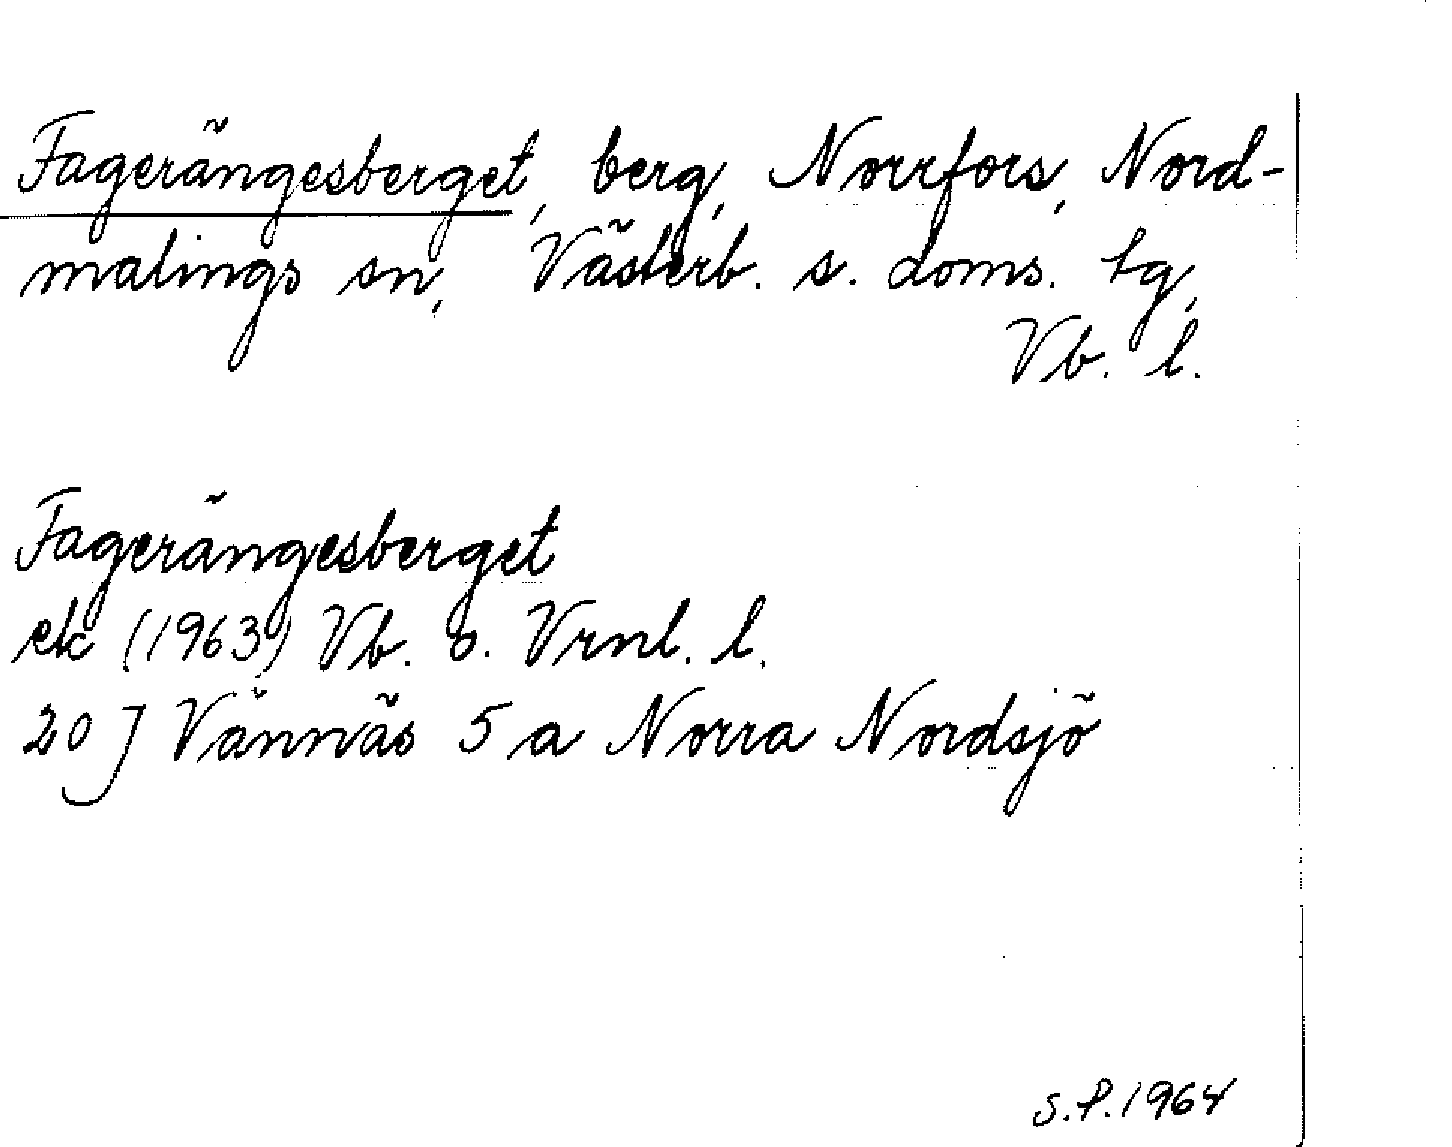 Fagerängesberget, berg, Norrfors, Nord-
malings sn, Västerb. s. doms. tg,
Vb. l.
Fagerängesberget
ek (1963) Vb. o. Vrnl. l.
20 J Vännäs 5 a Norra Nordsjö
S.P. 1964